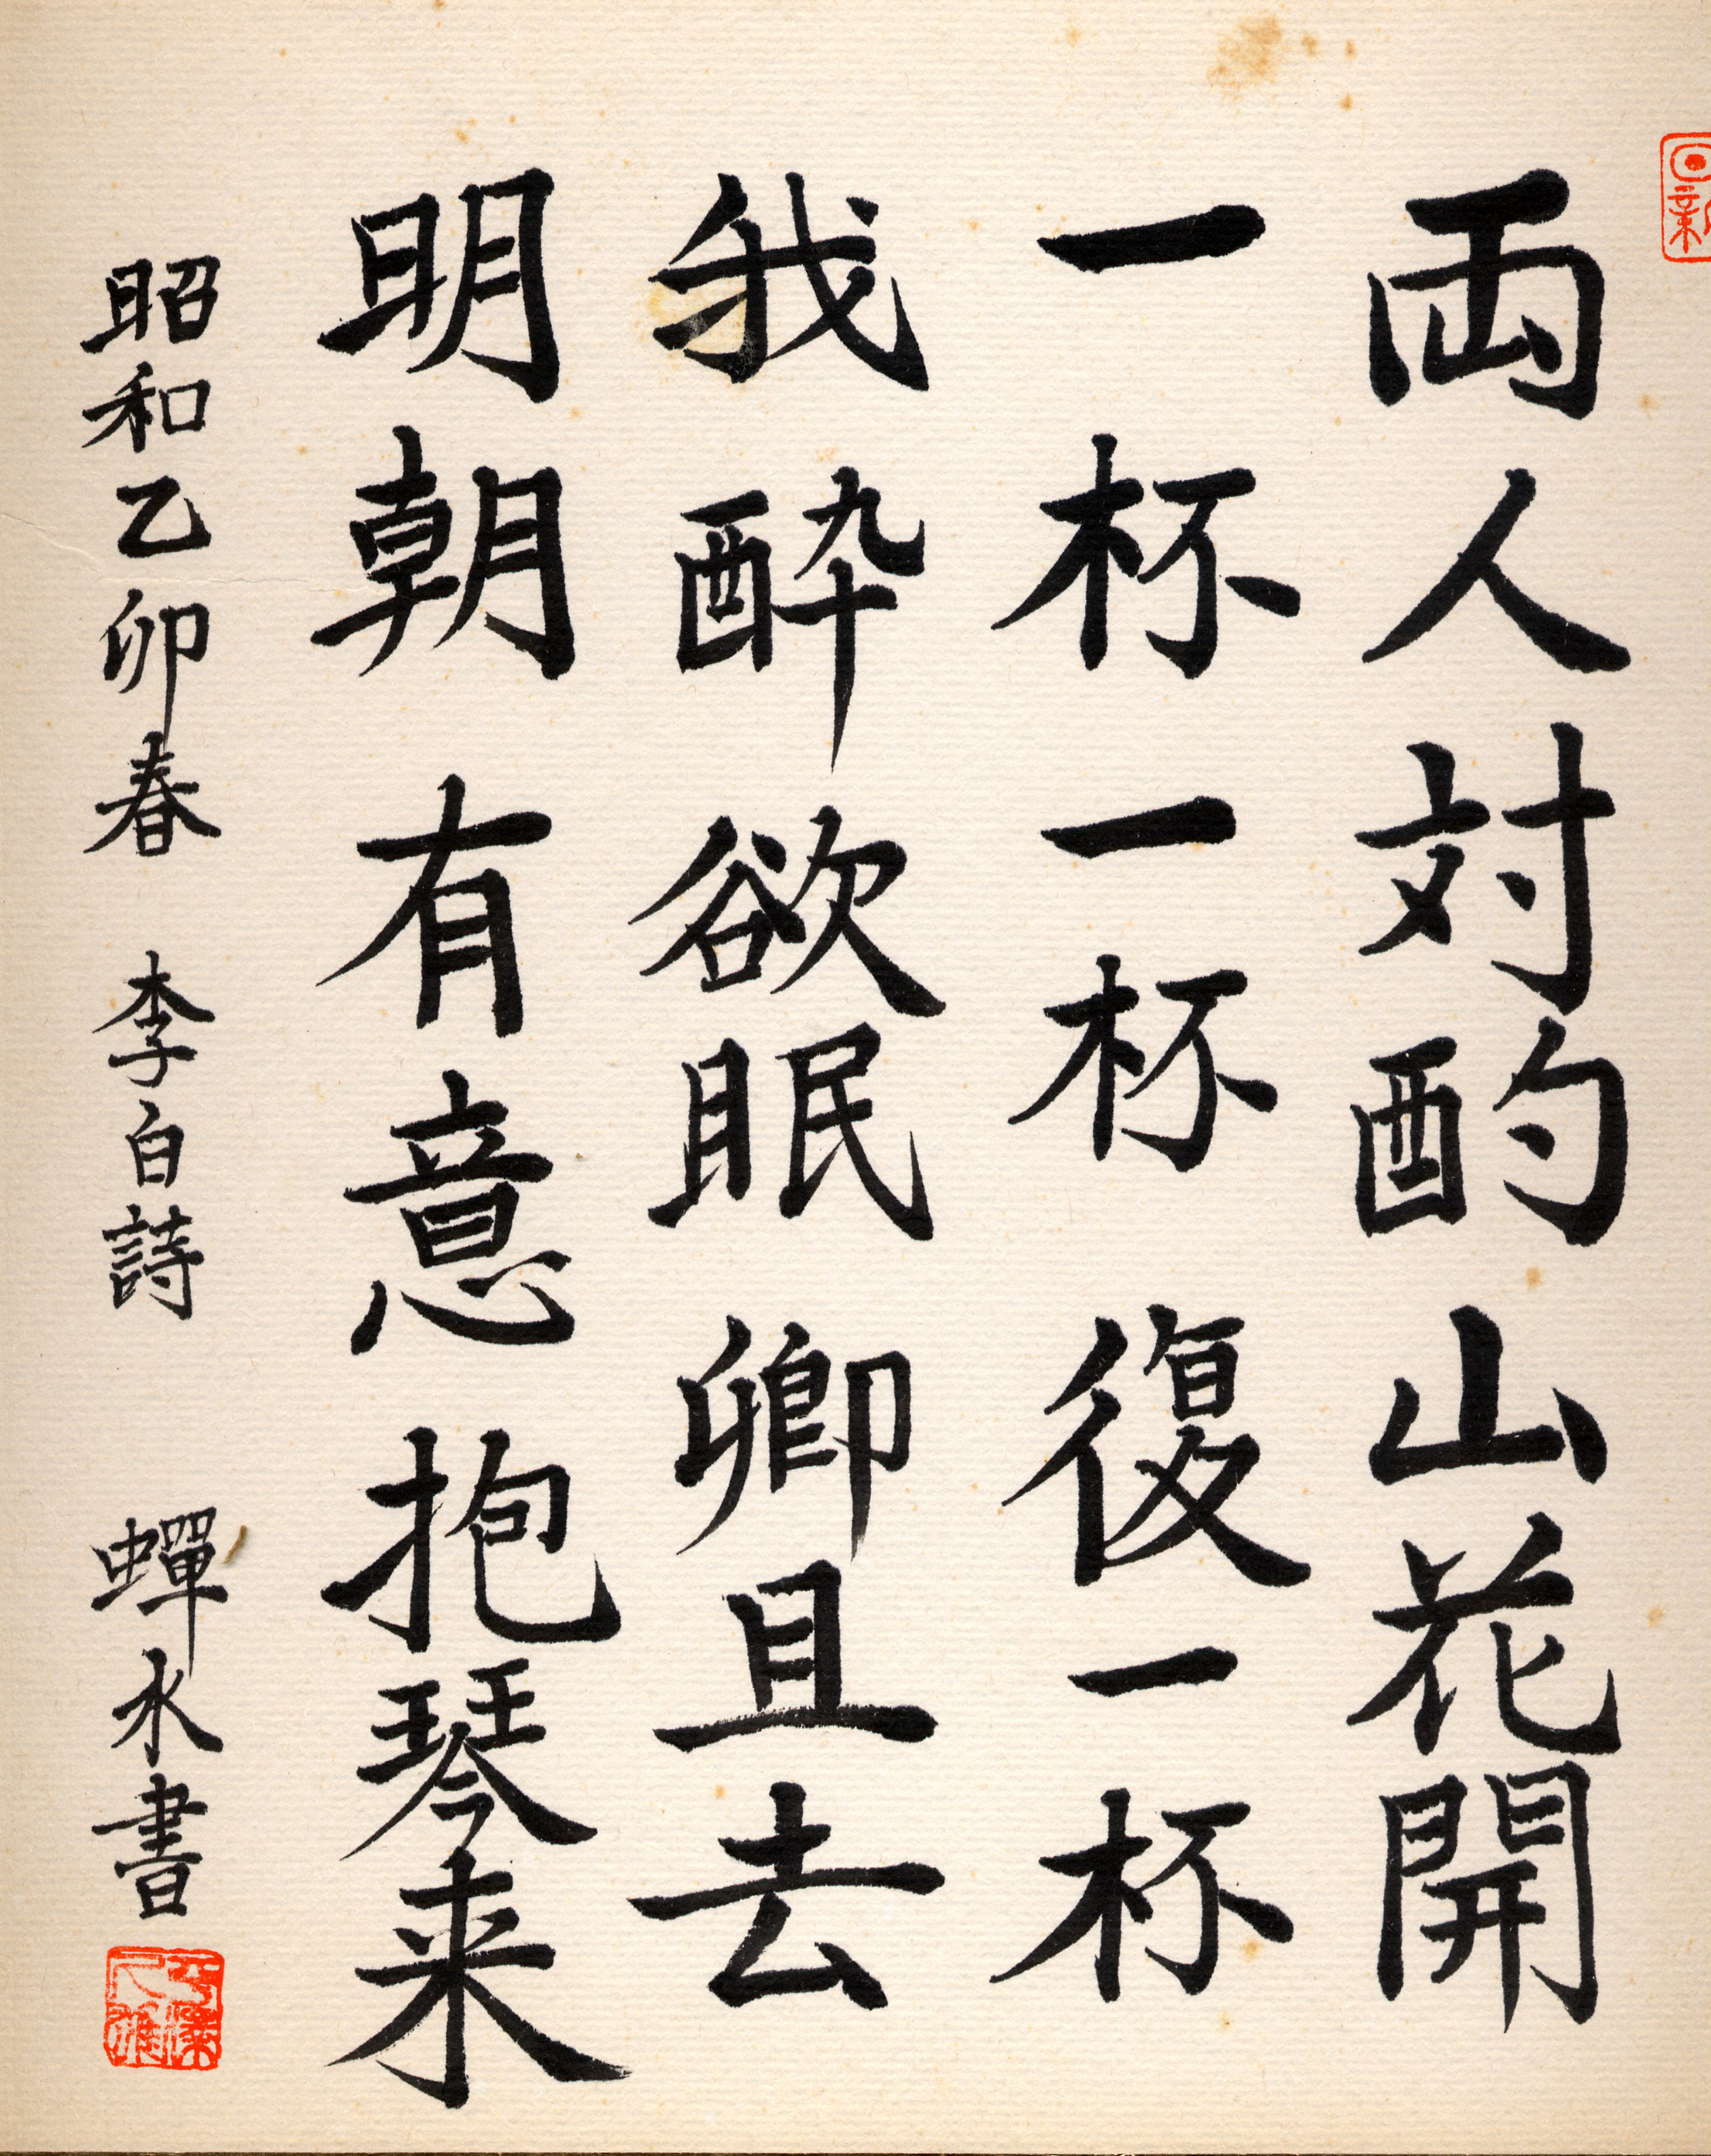 両人対酌山花開
一杯一杯復一杯
我酔欲眠卿且去
明朝有意抱琴来
昭和乙卯春 李白詩 蟬水書